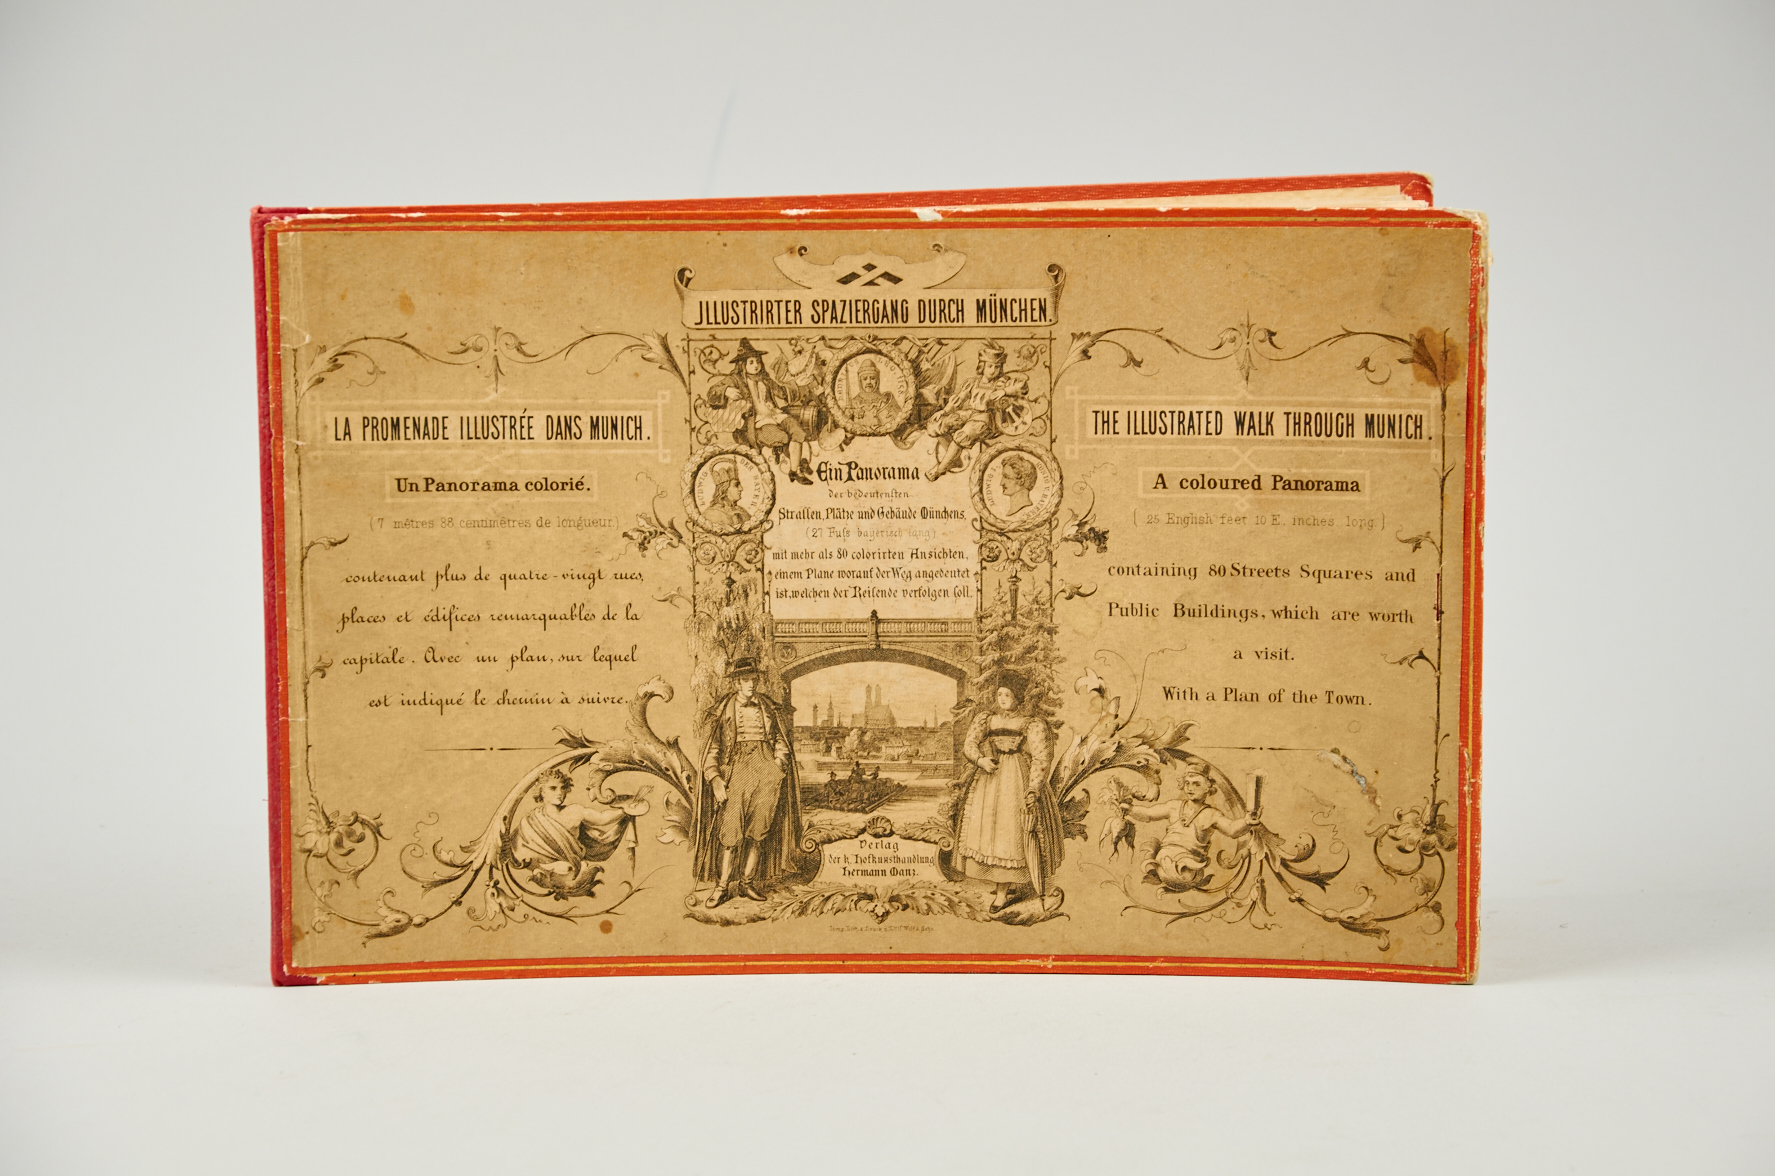 JLLUSTRIRTER SPAZIERGANG DURCH MÜNCHEN.
LA PROMENADE ILLUSTRÉE DANS MUNICH.
Un Panorama colorié.
(7 mètres 88 centimètres de longueur.)
contenant plus de quatre-vingt rues,
places et édifices remarquables de la
capitale. Avec un plan, sur lequel
est indiqué le chemin à suivre.
Ein Panorama
der bedeutensten
Strassen, Plätze und Gebäude Münchens,
(27 Fuss bayerisch lang)
mit mehr als 80 colorirten Ansichten,
einem Plane worauf der Weg angedeutet
ist, welchen der Reisende verfolgen soll.
Verlag
der k. Hofkunsthandlung
Hermann Manz.
THE ILLUSTRATED WALK THROUGH MUNICH.
A coloured Panorama
( 25 English feet 10 E. inches long.)
containing 80 Streets Squares and
Public Buildings, which are worth
a visit.
With a Plan of the Town.